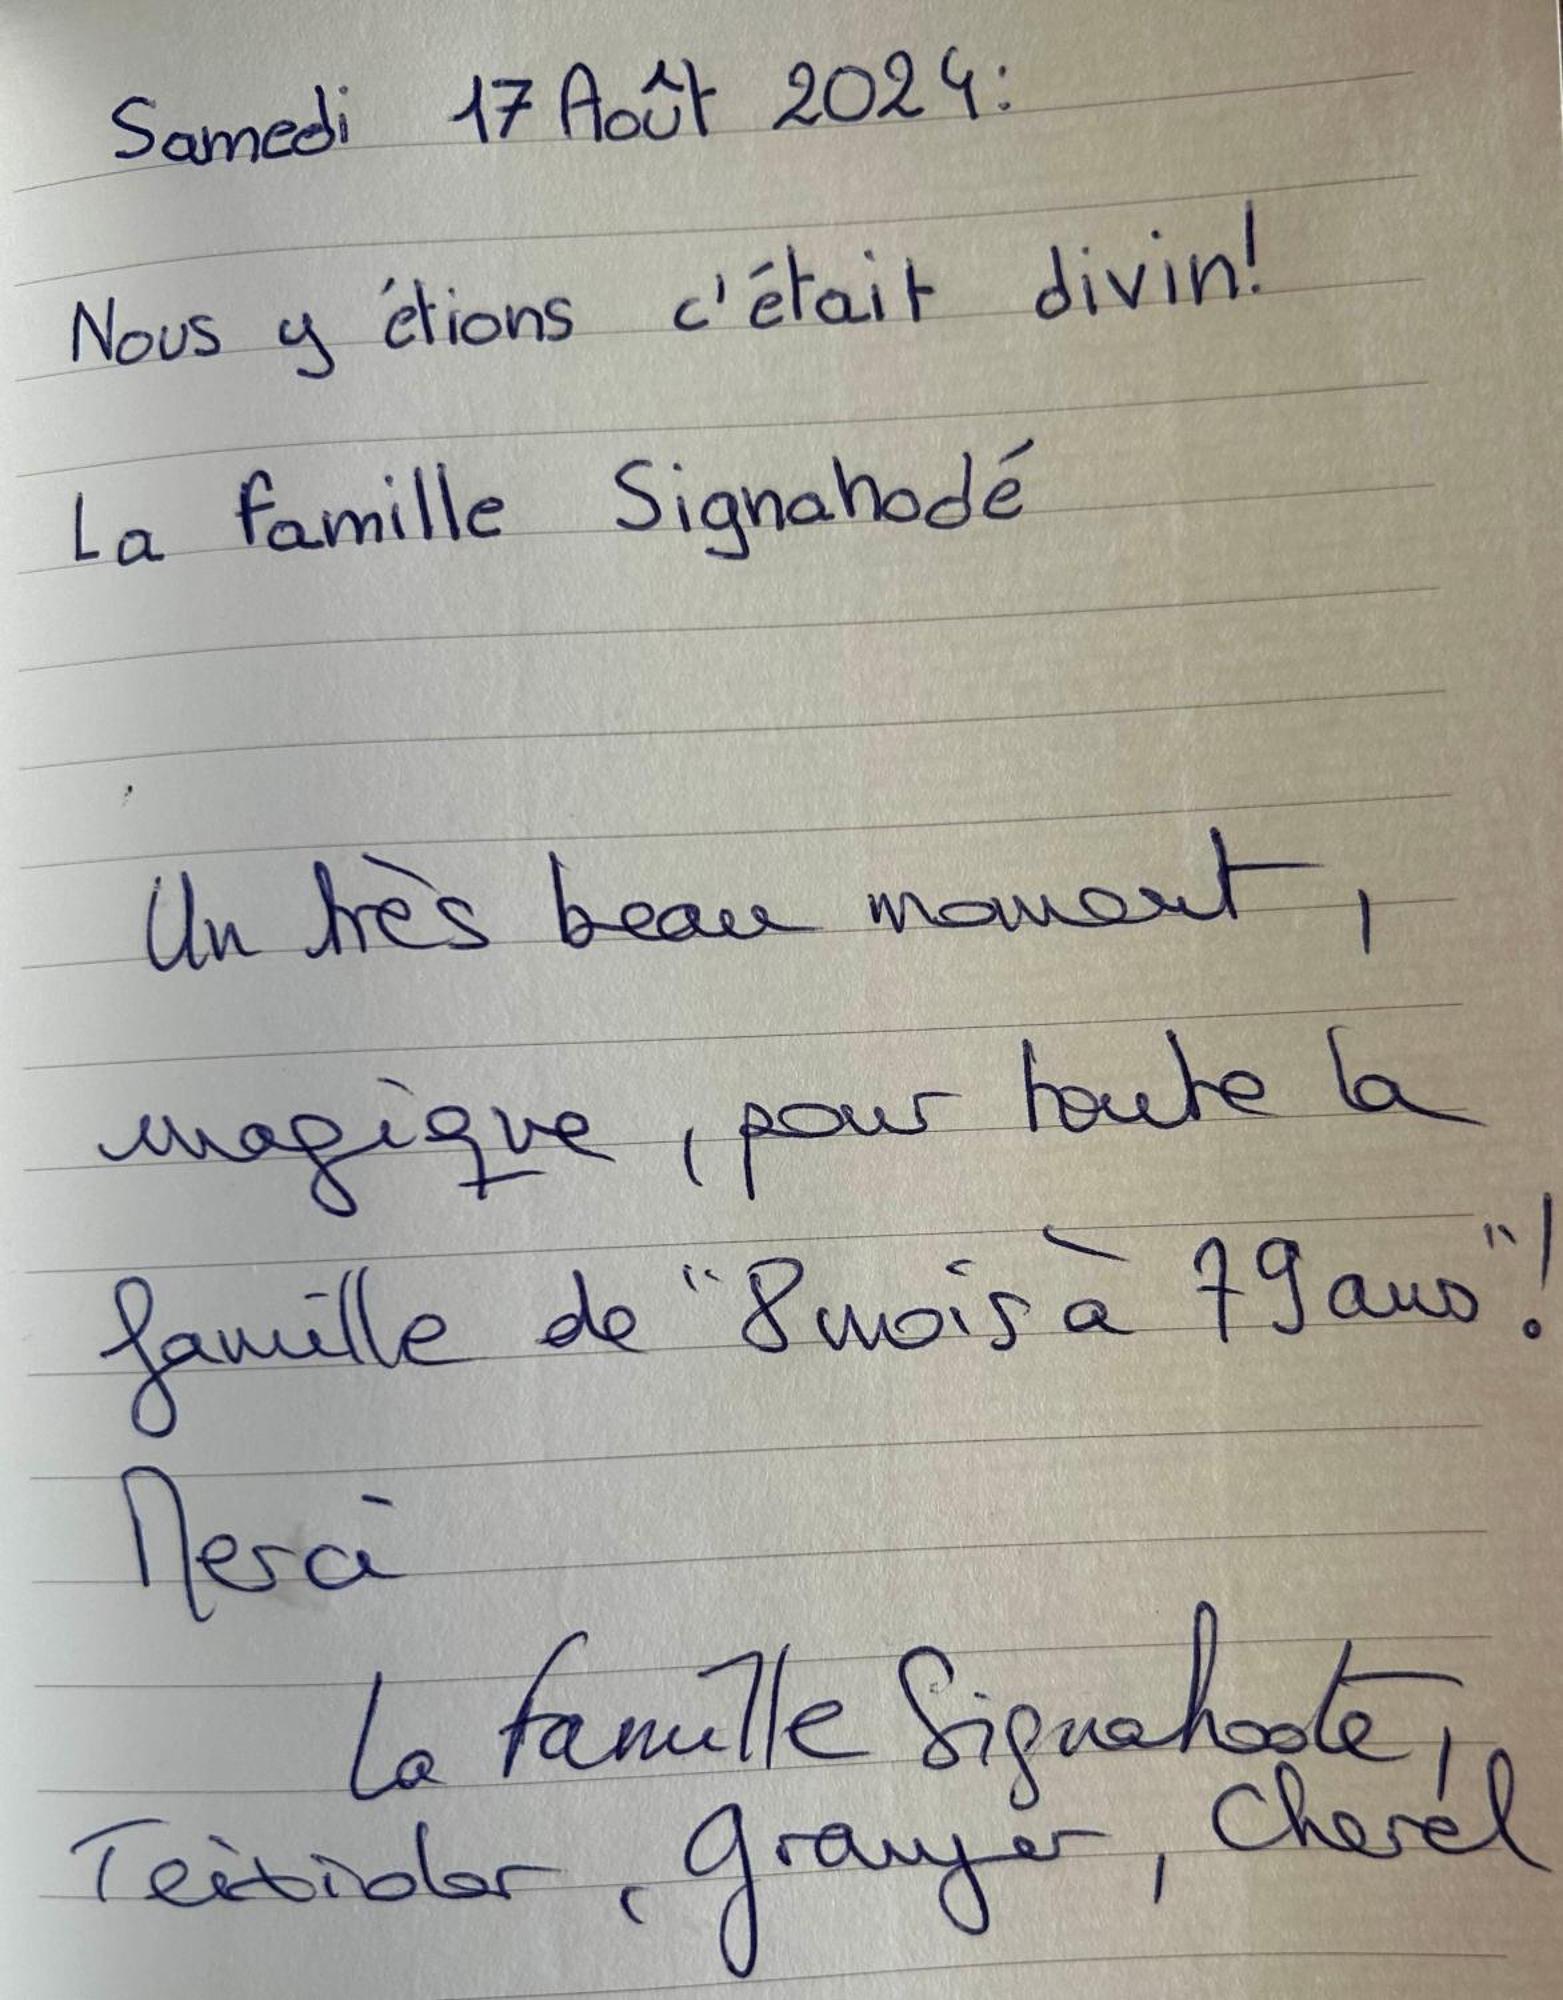 Samedi 17 Août 2024:
Nous y étions c'était divin!
La famille Signahodé
Un très beau moment,
magique, pour toute la
famille de "8 mois à 79 ans"!
Merci
La famille Signahodé,
Granger, Cherel